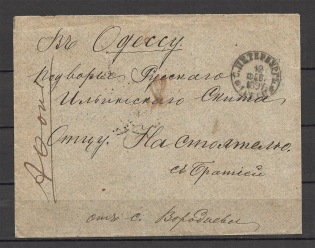 Въ Одессу
Подворье Русскаго
Ильинскаго Скита
Отцу Настоятелю
съ Братiей
отъ с.
С.ПЕТЕРБУРГЪ
19
ФЕВ.